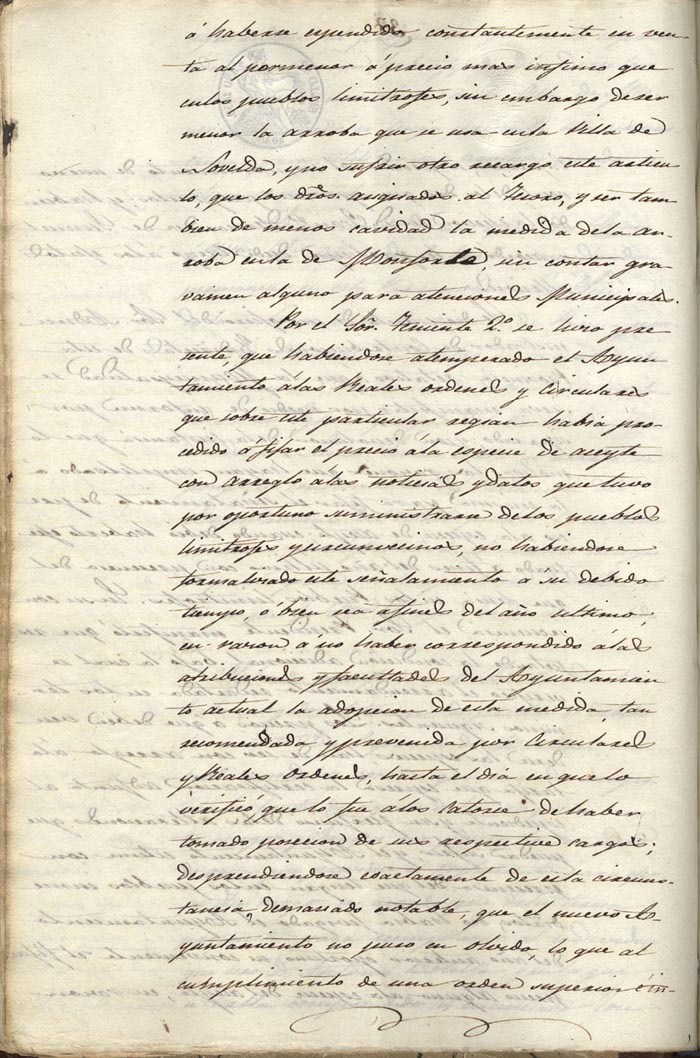 á haberse expendido constantemente en ven-
ta al pormenor á precio mas infimo que
en los pueblos limitrofes, sin embargo de ser
menor la arroba que se usa en la Villa de
Novelda, y no sufrir otro recargo este articu-
lo, que los dros. asignados al Tesoro, y ser tam-
bien de menos cavidad la medida de la ar-
roba en la de Monforte, sin contar gra-
vamen alguno para atenciones Municipales.
Por el Sor. Teniente 2.º se hizo pre-
sente, que habiendose atemperado el Ayun-
tamiento á las Reales ordenes y Circulares
que sobre este particular regian habia pro-
cedido á fijar el precio á la especie de aceyte
con arreglo á las noticias y datos que tuvo
por oportuno suministrarse de los pueblos
limitrofes y circunvecinos, no habiendose
formalizado este señalamiento á su debido
tiempo, ó bien sea á fines del año ultimo,
en razon á no haber correspondido á las
atribuciones y facultades del Ayuntamien-
to actual la adopcion de esta medida, tan
recomendada y prevenida por Circulares
y Reales ordenes, hasta el dia en que lo
verificó que lo fue á los catorce de haber
tomado posecion de sus respective cargos;
desprendiendose exactamente de esta circuns-
tancia, demasiado notable, que el nuevo A-
yuntamiento no puso en olvido, lo que al
cumplimiento de una orden superior é in-